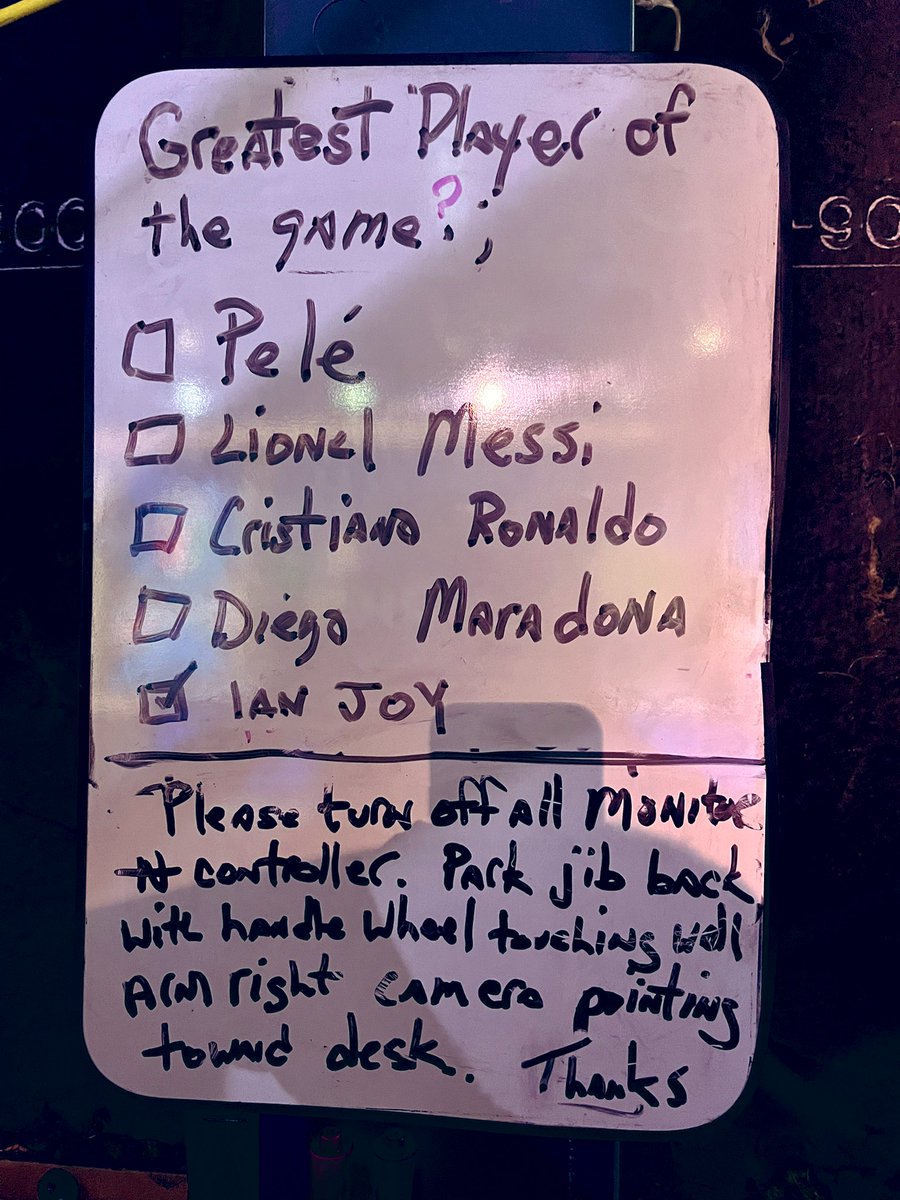 Greatest Player of
the game?;
Pelé
Lionel Messi
Cristiano Ronaldo
Diego Maradona
IAN JOY
Please turn off all Monitor
controller. Park jib back
with handle wheel touching wall
Arm right camera pointing
toward desk. Thanks
200
-90